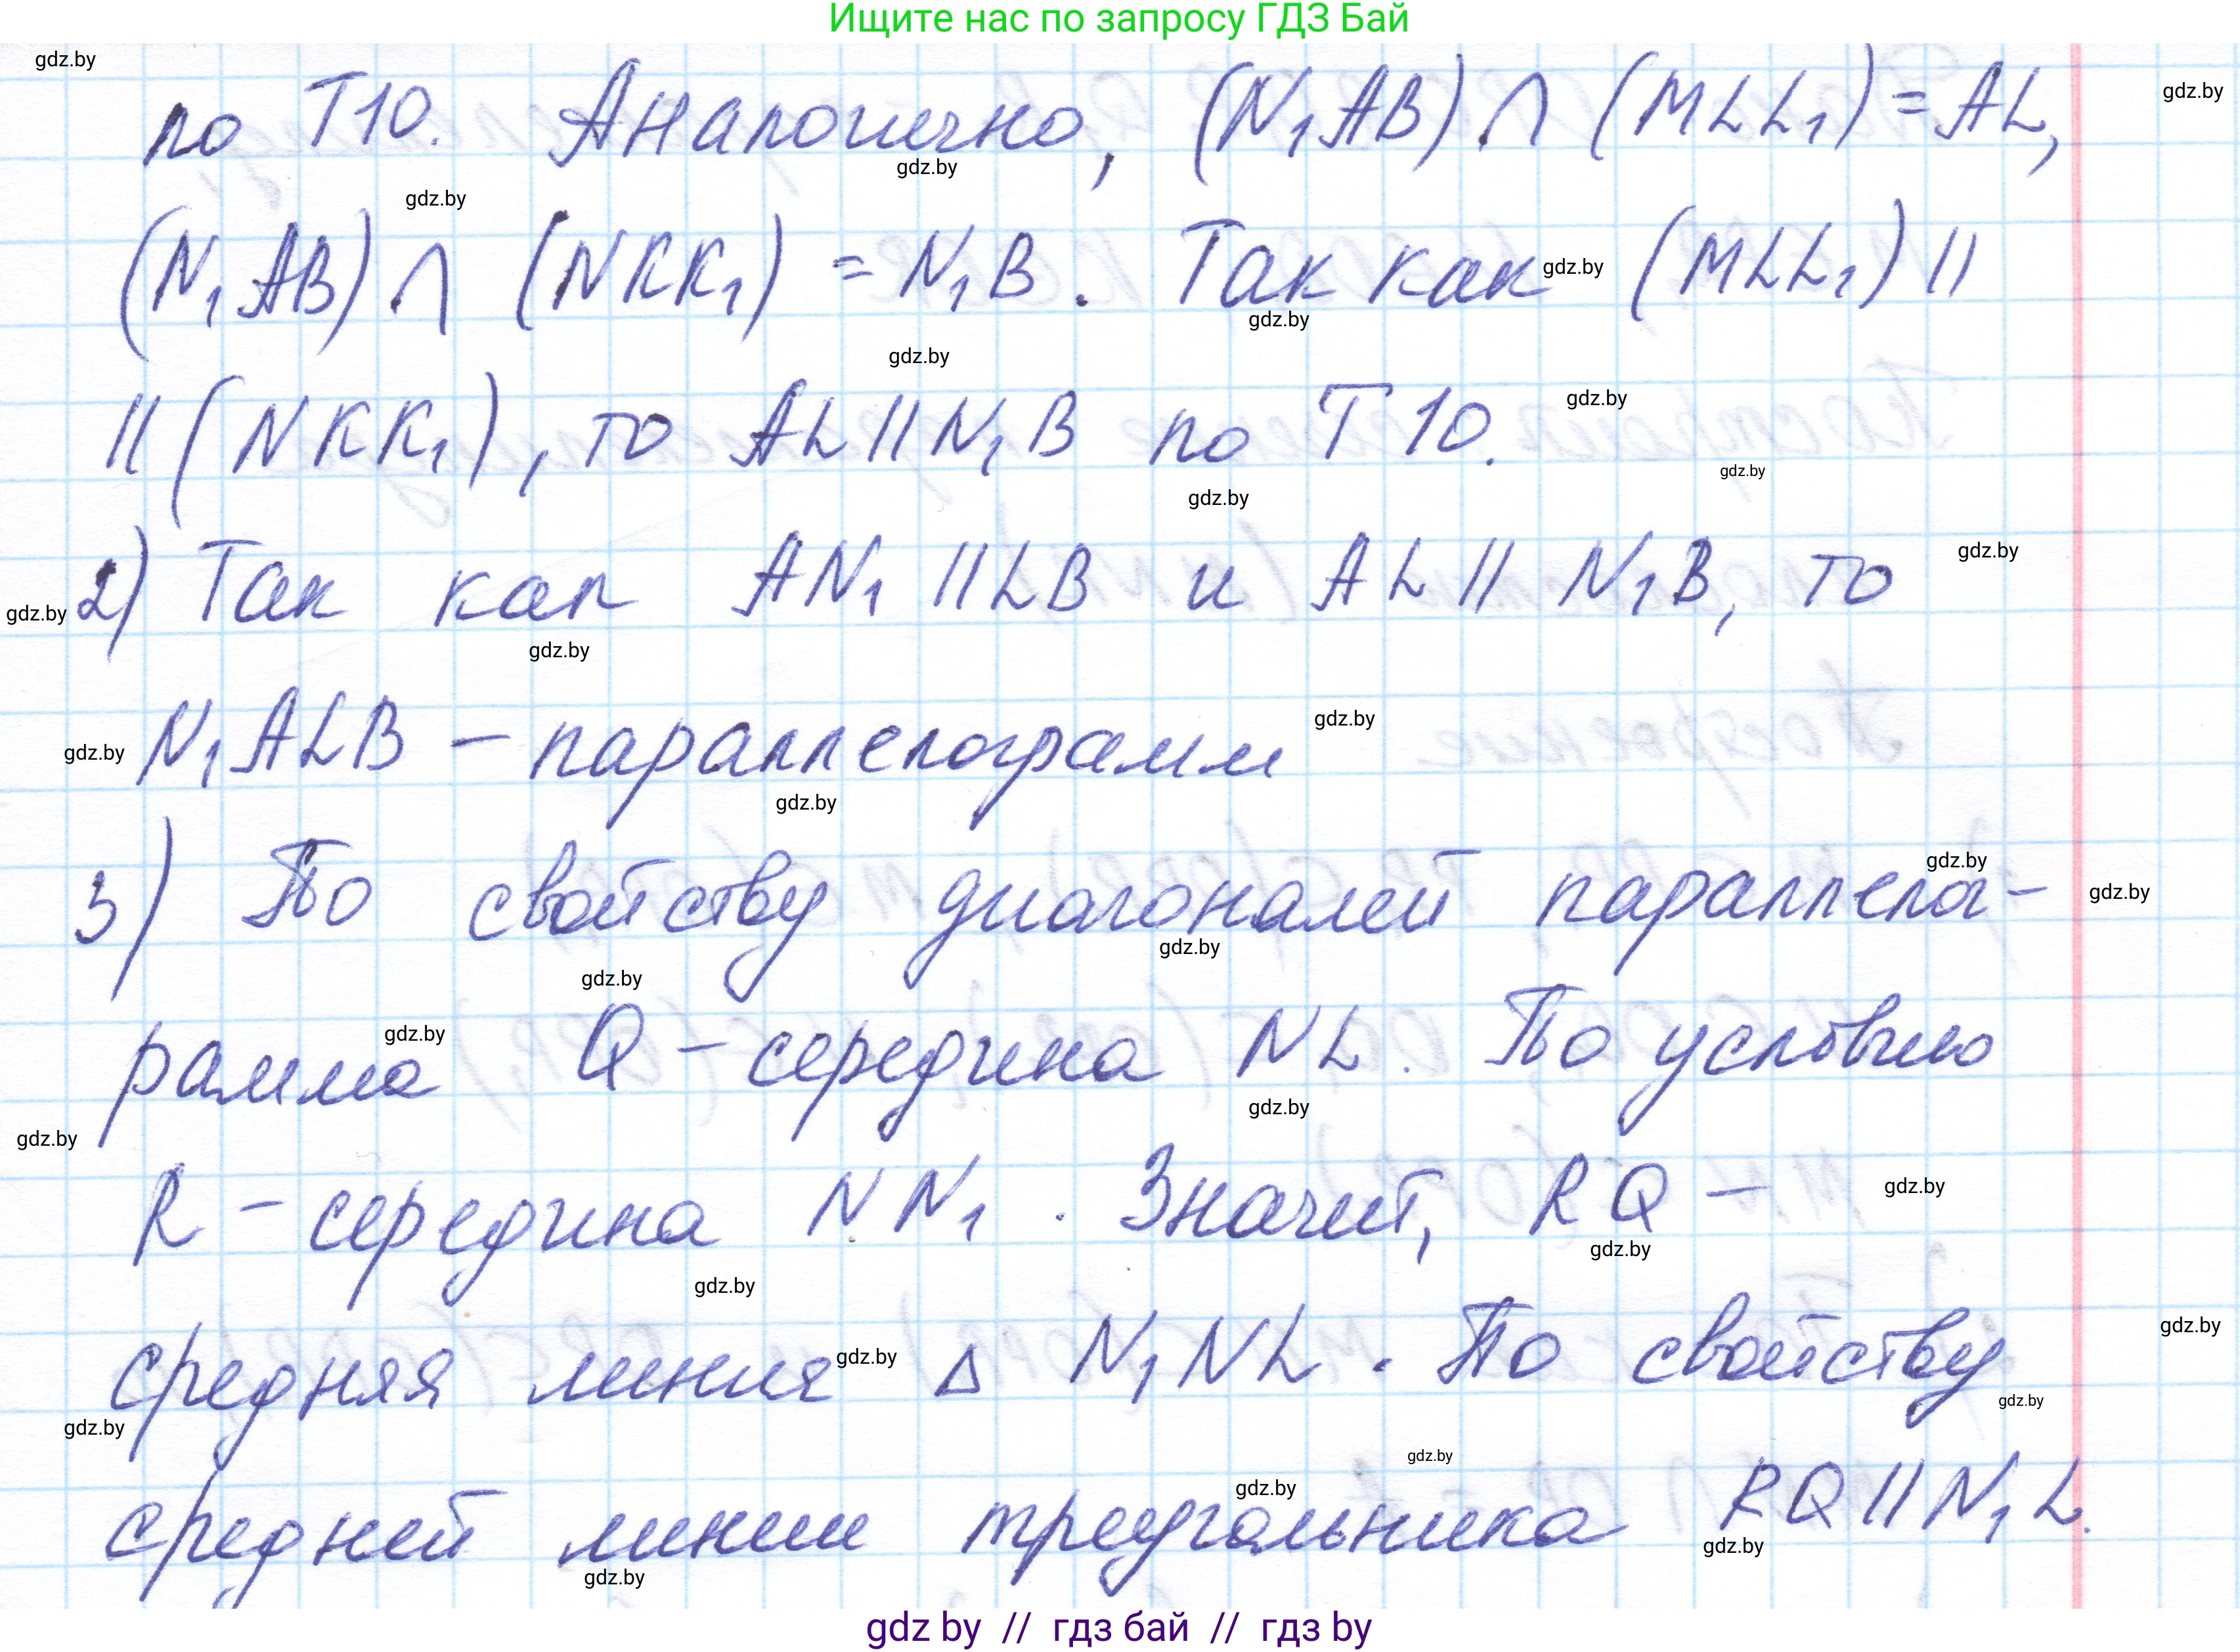 Ищите нас по запросу ГДЗ Бай
по Т10. Аналогично, (N₁AB) ∩ (MLL₁) = AL,
(N₁AB) ∩ (NKK₁) = N₁B. Так как (MLL₁) ||
|| (NKK₁), то AL || N₁B по Т10.
2) Так как AN₁ || LB и AL || N₁B, то
N₁ALB – параллелограмм
3) По свойству диагоналей параллелог-
рамма Q – середина NL. По условию
R – середина NN₁. Значит, RQ –
средняя линия Δ N₁NL. По свойству
средней линии треугольника RQ || N₁L.
gdz by // гдз бай // гдз by